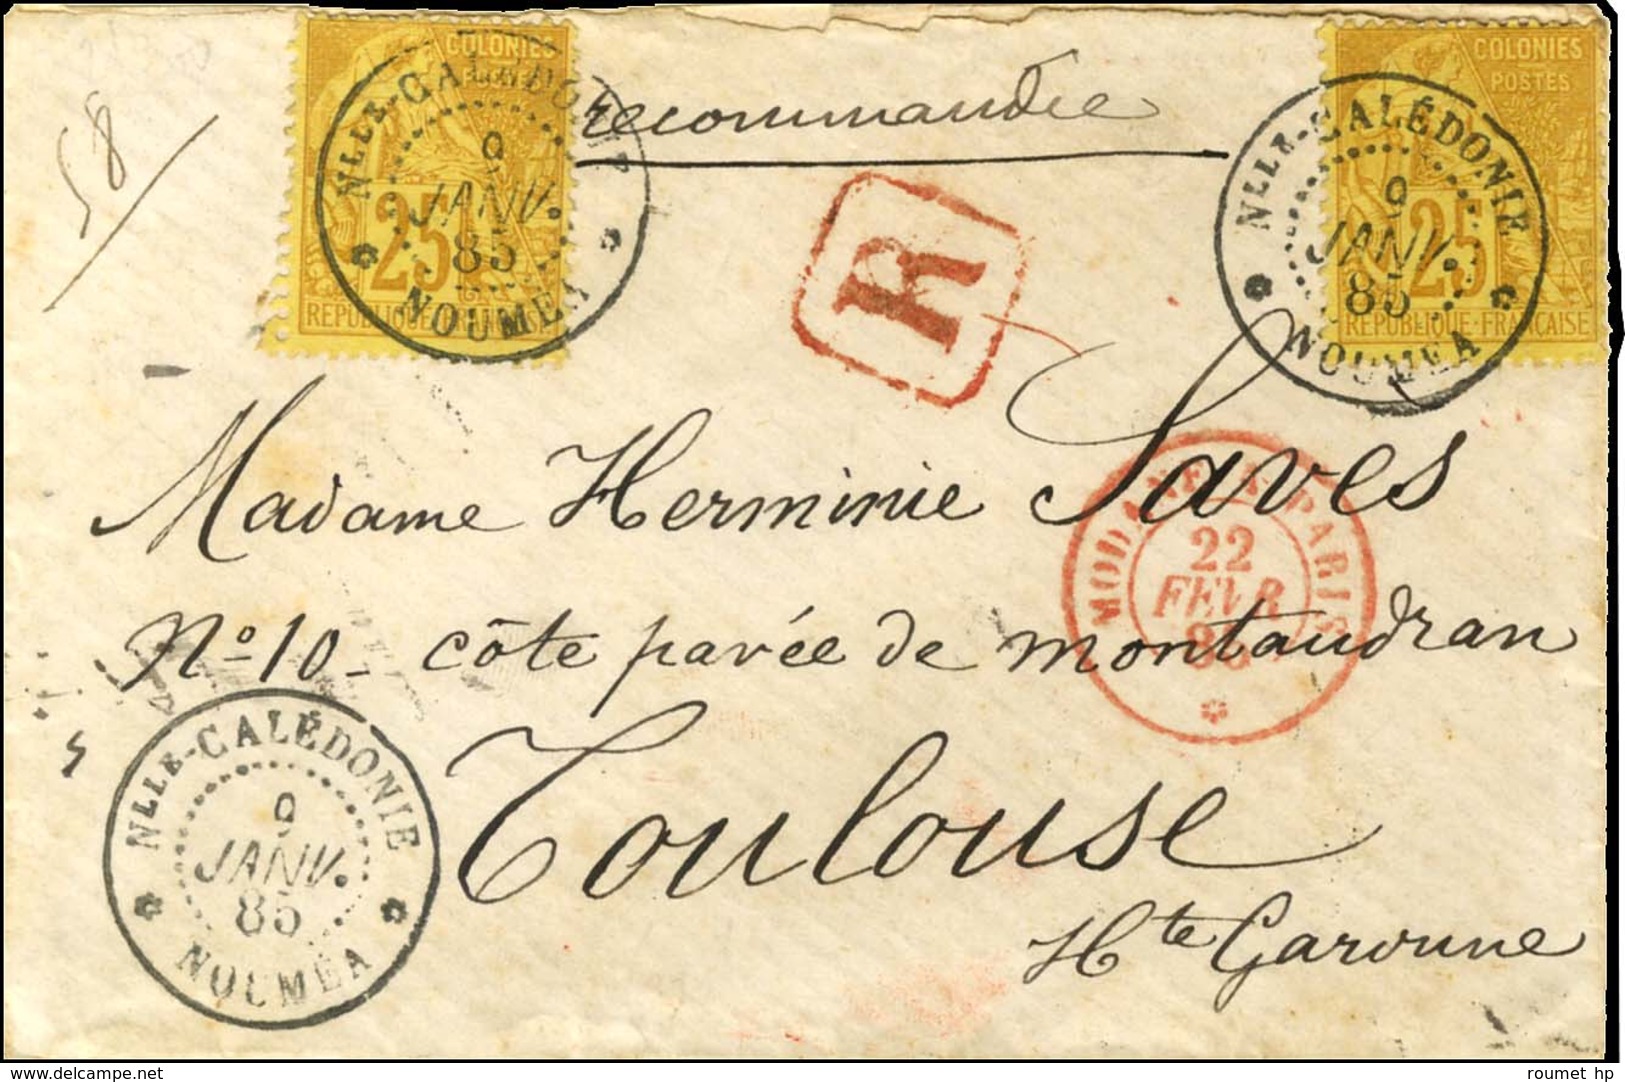 COLONIES
POSTES
25
RÉPUBLIQUE FRANÇAISE
NLLE-CALÉDONIE
9
JANV.
85
NOUMÉA
recommandée
COLONIES
POSTES
25
RÉPUBLIQUE FRANÇAISE
NLLE-CALÉDONIE
9
JANV.
85
NOUMÉA
58
R
Madame Herminie Saves
MODANE A PARIS
22
FEVR
85
No 10 - côte pavée de montaudran
Toulouse
Hte Garonne
NLLE-CALÉDONIE
9
JANV.
85
NOUMÉA
www.delcampe.net
roumet hp